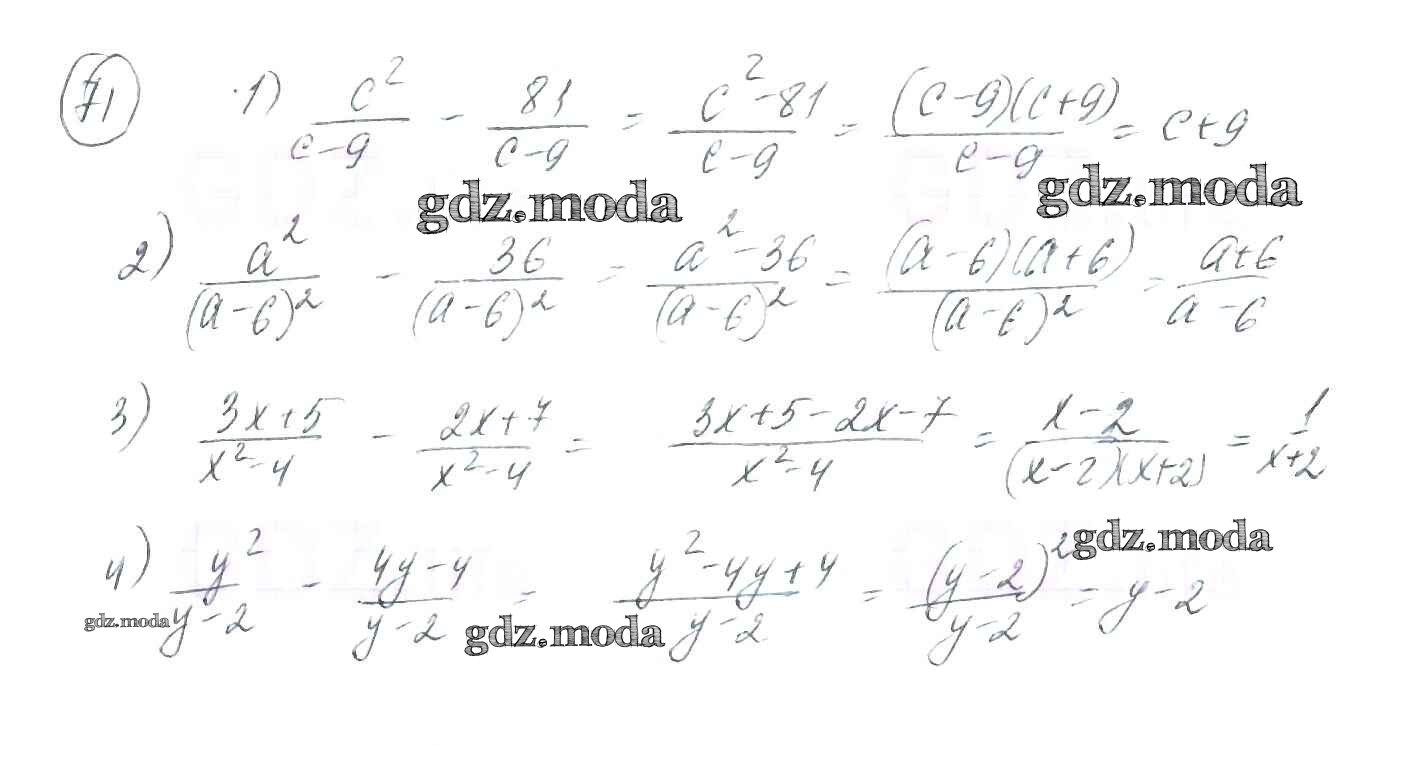 71 1) c²/(c-9) - 81/(c-9) = (c²-81)/(c-9) = (c-9)(c+9)/(c-9) = c+9
gdz.moda gdz.moda
2) a²/(a-6)² - 36/(a-6)² = (a²-36)/(a-6)² = (a-6)(a+6)/(a-6)² = (a+6)/(a-6)
3) (3x+5)/(x²-4) - (2x+7)/(x²-4) = (3x+5-2x-7)/(x²-4) = (x-2)/((x-2)(x+2)) = 1/(x+2)
gdz.moda
4) y²/(y-2) - (4y-4)/(y-2) = (y²-4y+4)/(y-2) = (y-2)²/(y-2) = y-2
gdz.moda gdz.moda